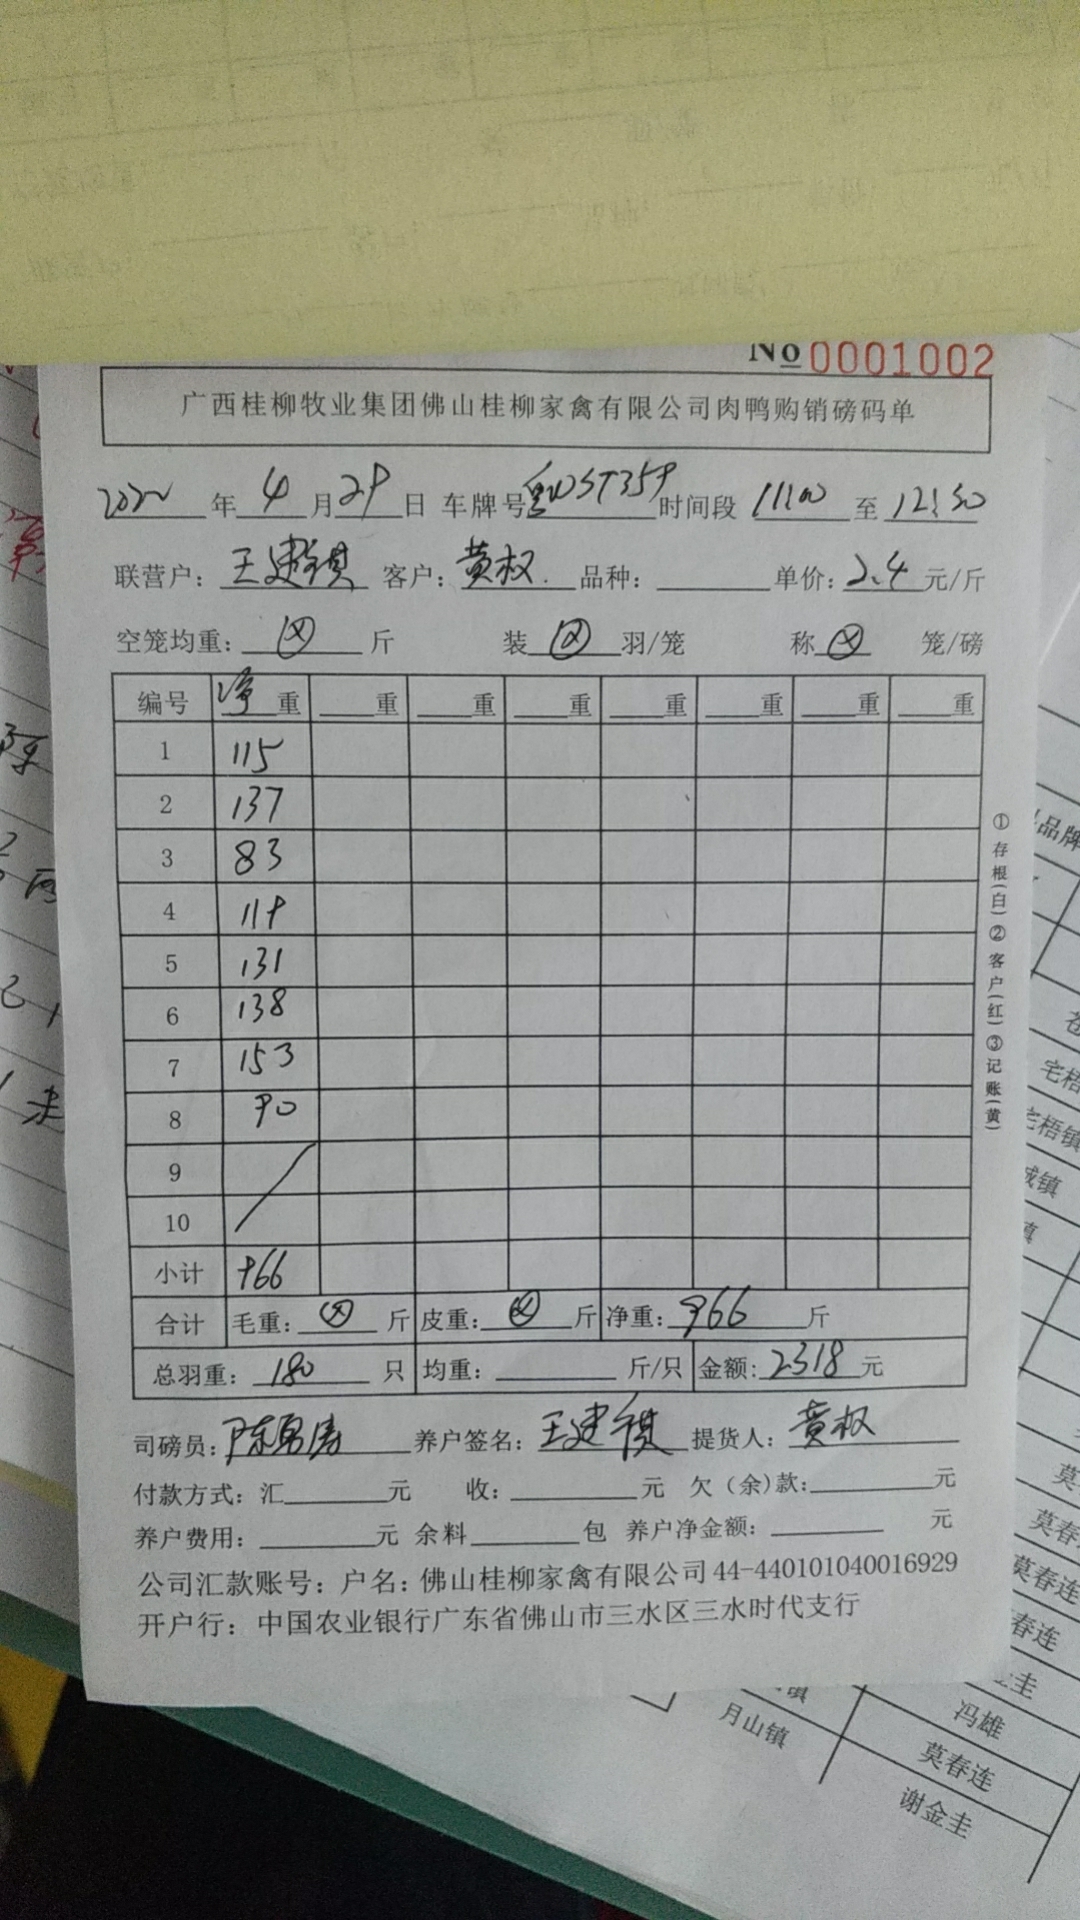 No 0001002
广西桂柳牧业集团佛山桂柳家禽有限公司肉鸭购销磅码单
2022 年 4 月 29 日 车牌号 粤WST359 时间段 11:00 至 12:30
联营户: 王建镇 客户: 黄权 品种: 单价: 2.4 元/斤
空笼均重: 斤 装 羽/笼 称 笼/磅
编号 净重 重 重 重 重 重 重 重
1 115
2 137
3 83
4 119
5 131
6 138
7 153
8 90
9
10
小计 966
合计 毛重: 斤 皮重: 斤 净重: 966 斤
总羽重: 180 只 均重: 斤/只 金额: 2318 元
司磅员: 养户签名: 王建镇 提货人: 黄权
付款方式: 汇 元 收: 元 欠(余)款: 元
养户费用: 元 余料 包 养户净金额: 元
公司汇款账号: 户名: 佛山桂柳家禽有限公司 44-440101040016929
开户行: 中国农业银行广东省佛山市三水区三水时代支行
①存根(白)②客户(红)③记账(黄)
品牌
宅梧镇
莫春连
春连
月山镇
冯雄
莫春连
谢金圭